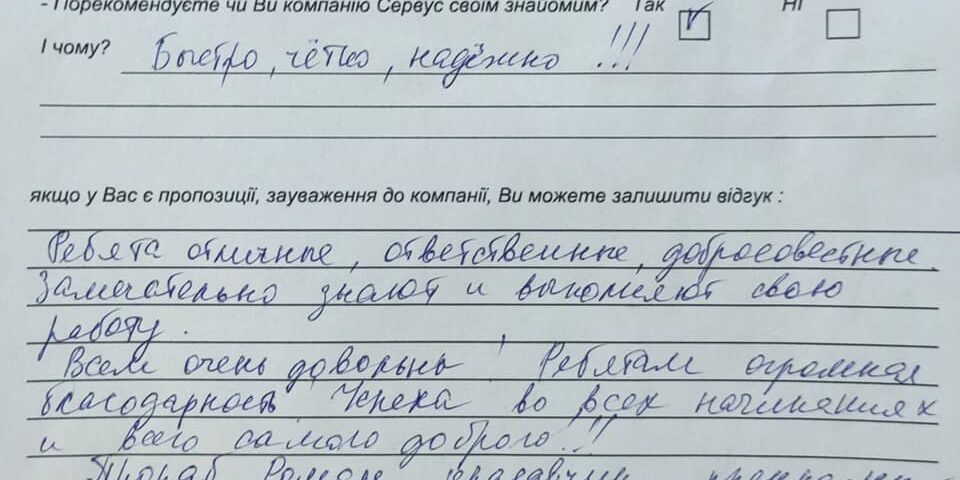 - Порекомендуєте чи Ви компанію Сервус своїм знайомим? Так Ні
І чому? Быстро, чётко, надёжно !!!
якщо у Вас є пропозиції, зауваження до компанії, Ви можете залишити відгук :
Ребята отличные, ответственные, добросовестные.
Замечательно знают и выполняют свою
работу.
Всем очень довольны. Ребятам огромная
благодарность. Успеха во всех начинаниях
и всего самого доброго!!